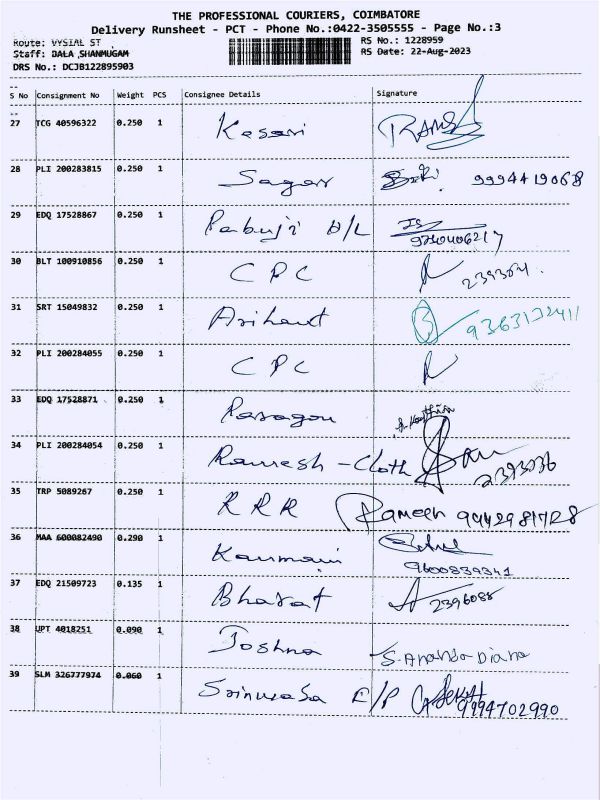 THE PROFESSIONAL COURIERS, COIMBATORE
Delivery Runsheet - PCT - Phone No.:0422-3505555 - Page No.:3
Route: VYSIAL ST RS No.: 1228959
Staff: BALA SHANMUGAM RS Date: 22-Aug-2023
DRS No.: DCJB122895903
S No Consignment No Weight PCS Consignee Details Signature
27 TCG 40596322 0.250 1 Kesari RAM
28 PLI 200283815 0.250 1 Sagar 9994419068
29 EDQ 17528867 0.250 1 Pabuji H/L
30 BLT 100910856 0.250 1 CPC
31 SRT 15049832 0.250 1 Arihant 9363132411
32 PLI 200284055 0.250 1 CPC
33 EDQ 17528871 0.250 1 Paragon
34 PLI 200284054 0.250 1 Ramesh - Cloth 2393036
35 TRP 5089267 0.250 1 RRR Rameeh 9442981728
36 MAA 600082490 0.290 1 Kanmani 9600839341
37 EDQ 21509723 0.135 1 Bharat 2396088
38 UPT 4018251 0.090 1 Joshna S. Ananda Diana
39 SLM 326777974 0.060 1 Srinivasa E/P 9994702990